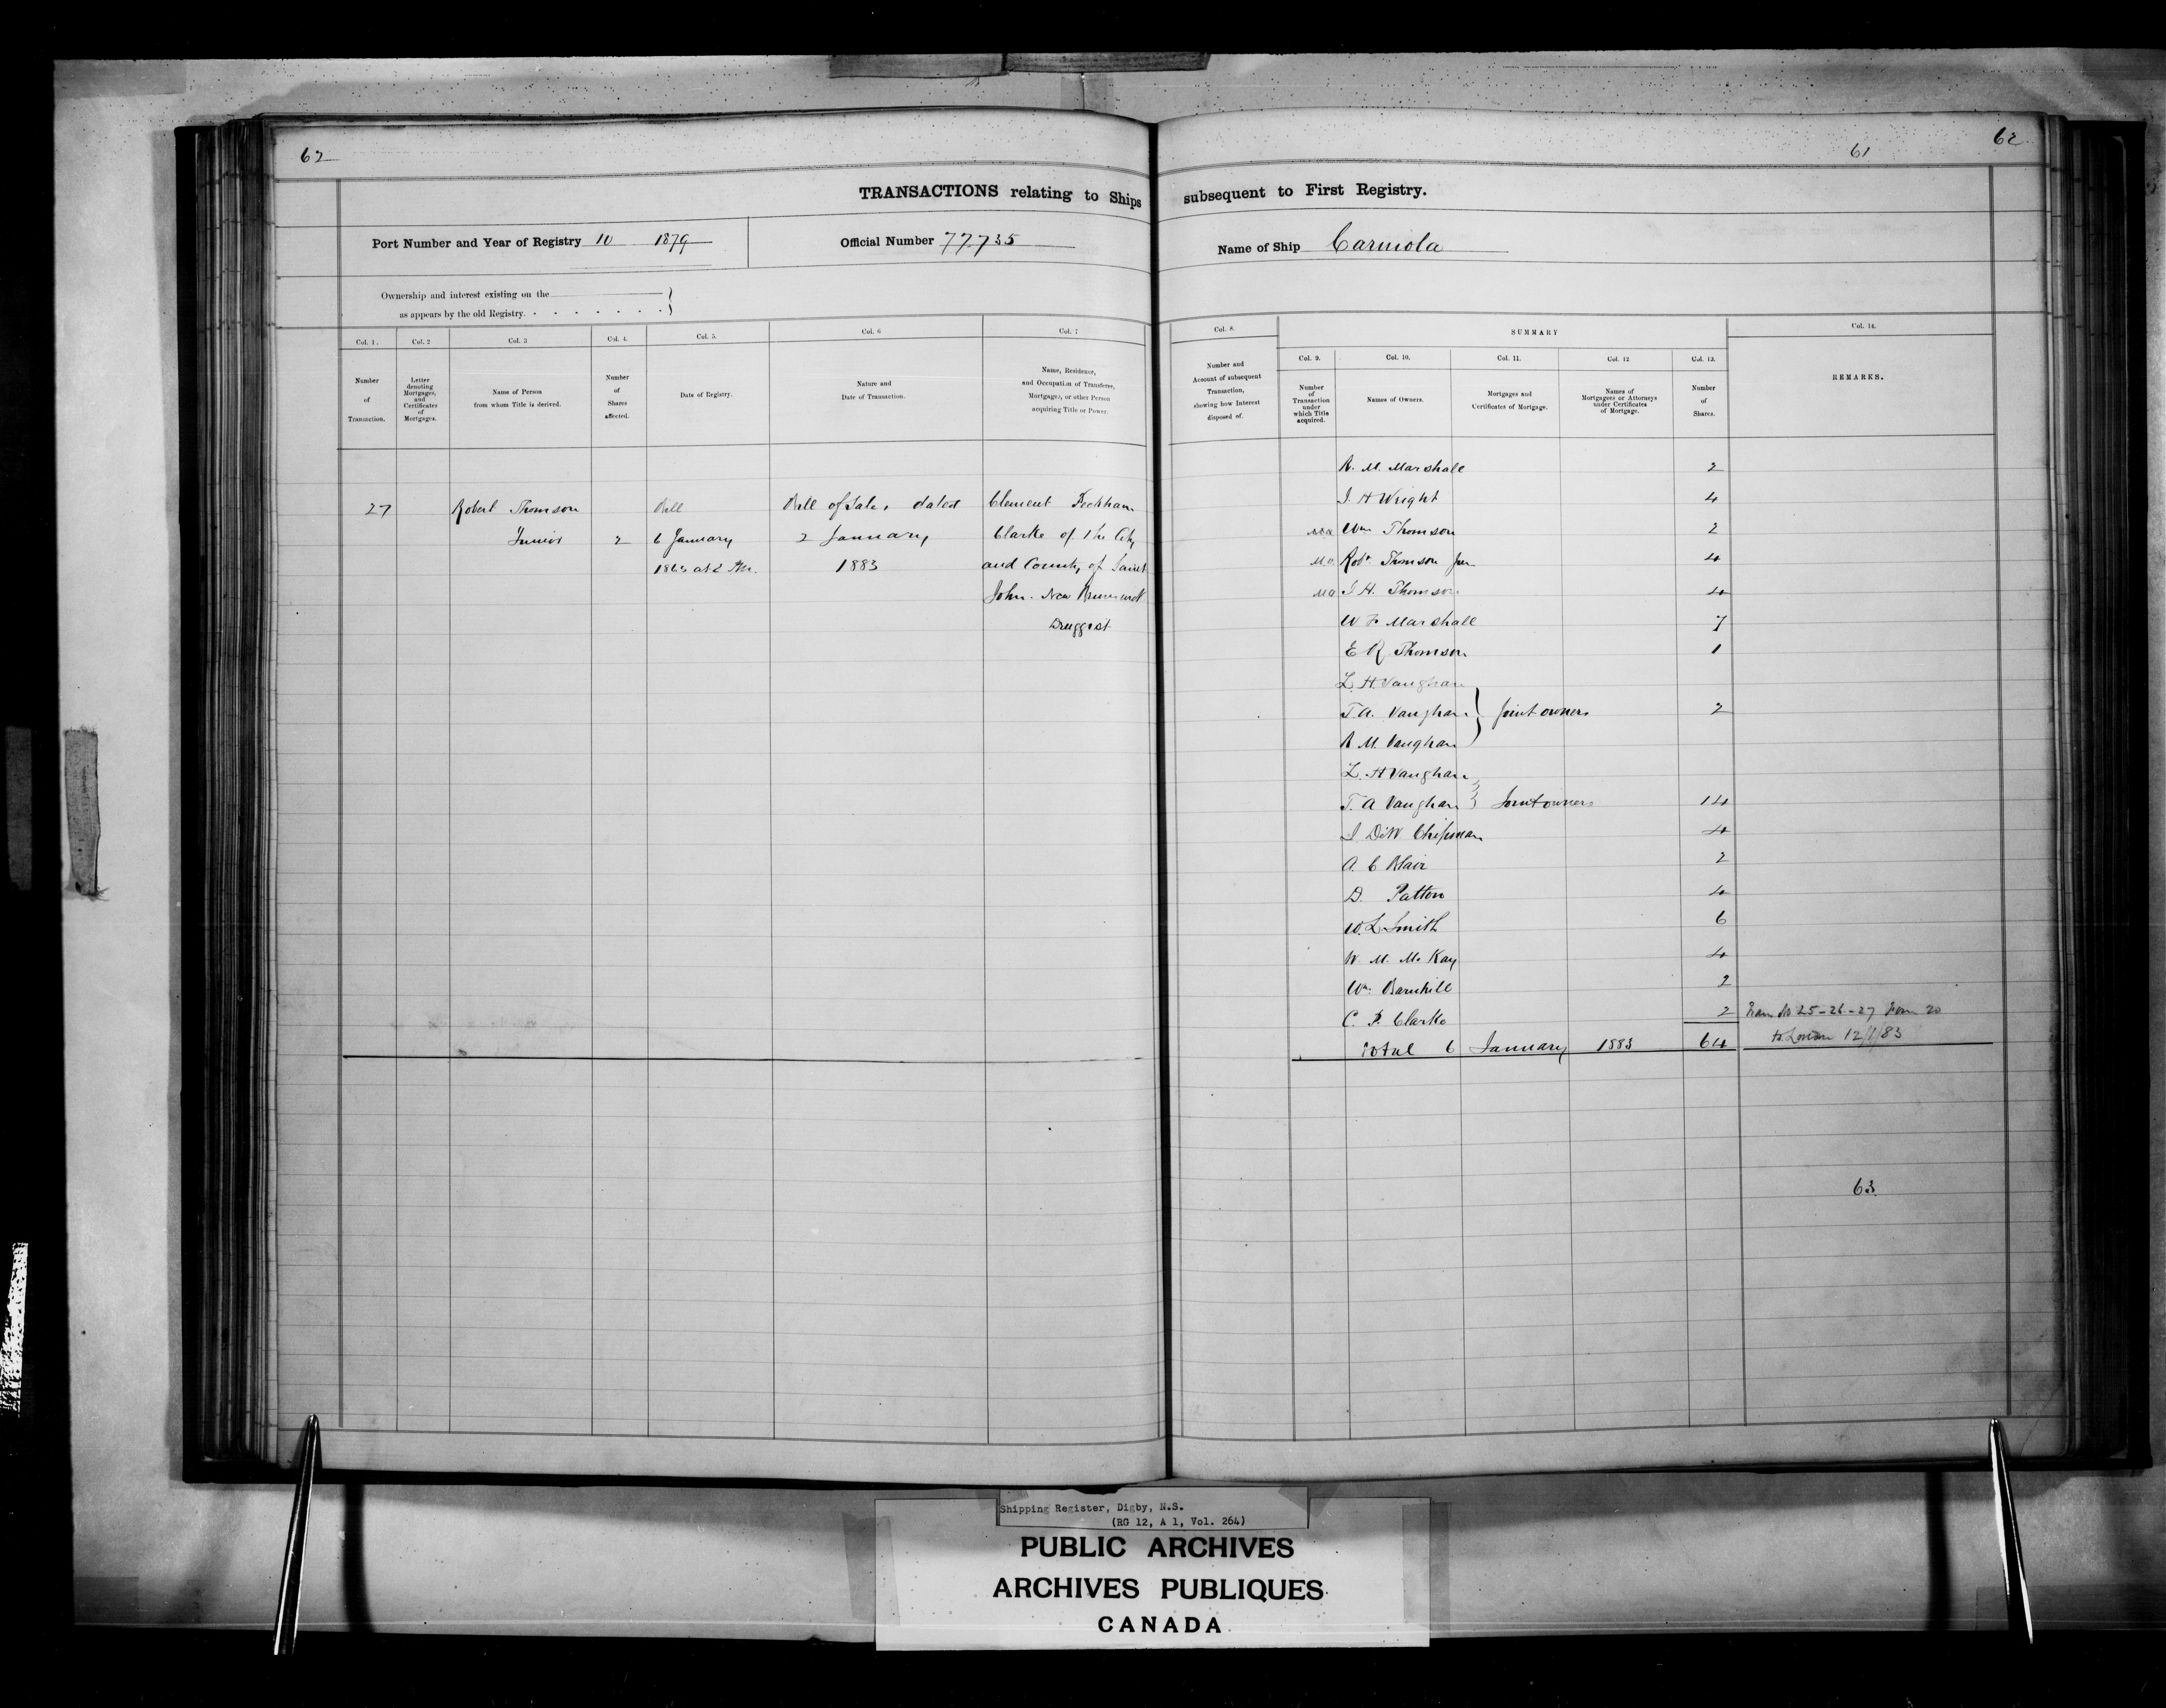 62
61
62
TRANSACTIONS relating to Ships subsequent to First Registry.
Port Number and Year of Registry 10 1879
Official Number 77735
Name of Ship Carmola
Ownership and interest existing on the
as appears by the old Registry.
Col. 1. Col. 2 Col. 3 Col. 4. Col. 5. Col. 6 Col. 7 Col. 8. SUMMARY Col. 14.
Col. 9. Col. 10. Col. 11. Col. 12 Col. 13.
Number
of
Transaction.
Letter
denoting
Mortgages,
and
Certificates
of
Mortgages.
Name of Person
from whom Title is derived.
Number
of
Shares
affected.
Date of Registry.
Nature and
Date of Transaction.
Name, Residence,
and Occupation of Transferee,
Mortgagee, or other Person
acquiring Title or Power.
Number and
Account of subsequent
Transaction,
showing how Interest
disposed of.
Number
of
Transaction
under
which Title
acquired.
Names of Owners.
Mortgages and
Certificates of Mortgage.
Names of
Mortgagees or Attorneys
under Certificates
of Mortgage.
Number
of
Shares.
REMARKS.
27 Robert Thomson
Junior 2
Bill
6 January
1863 at 2 Pm.
Bill of Sale, dated
2 January
1883
Clement Peckham
Clarke of the City
and County of Saint
John. New Brunswick
Druggist
R. M. Marshall 2
J. H Wright 4
Wm Thomson 2
M.O. Robt Thomson Jun 4
MO J. H. Thomson 4
W F Marshall 7
E R Thomson 1
L. H. Vaughan
T. A. Vaughan } Joint owners 2
R M. Vaughan
L. H Vaughan
T. A Vaughan } Joint owners 14
J. DeW Chipman 4
A. C Blair 2
D. Patton 4
W. L Smith 6
W. M. McKay 4
Wm. Barnhill 2
C. P. Clarke 2
Total 6 January 1883 64
Tran No 25-26-27 Form 20
to London 12/1/83
63
Shipping Register, Digby, N.S.
(RG 12, A 1, Vol. 264)
PUBLIC ARCHIVES
ARCHIVES PUBLIQUES
CANADA